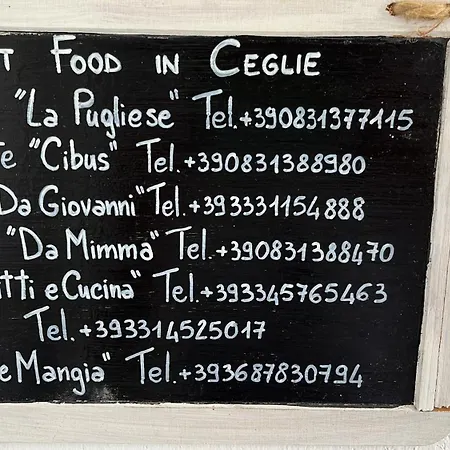 T FOOD IN CEGLIE
"La Pugliese" Tel.+390831377115
e "Cibus" Tel.+390831388980
Da Giovanni" Tel.+393331154888
"Da Mimma" Tel.+390831388470
tti e Cucina" Tel.+393345765463
Tel.+393314525017
e Mangia" Tel.+393687830794